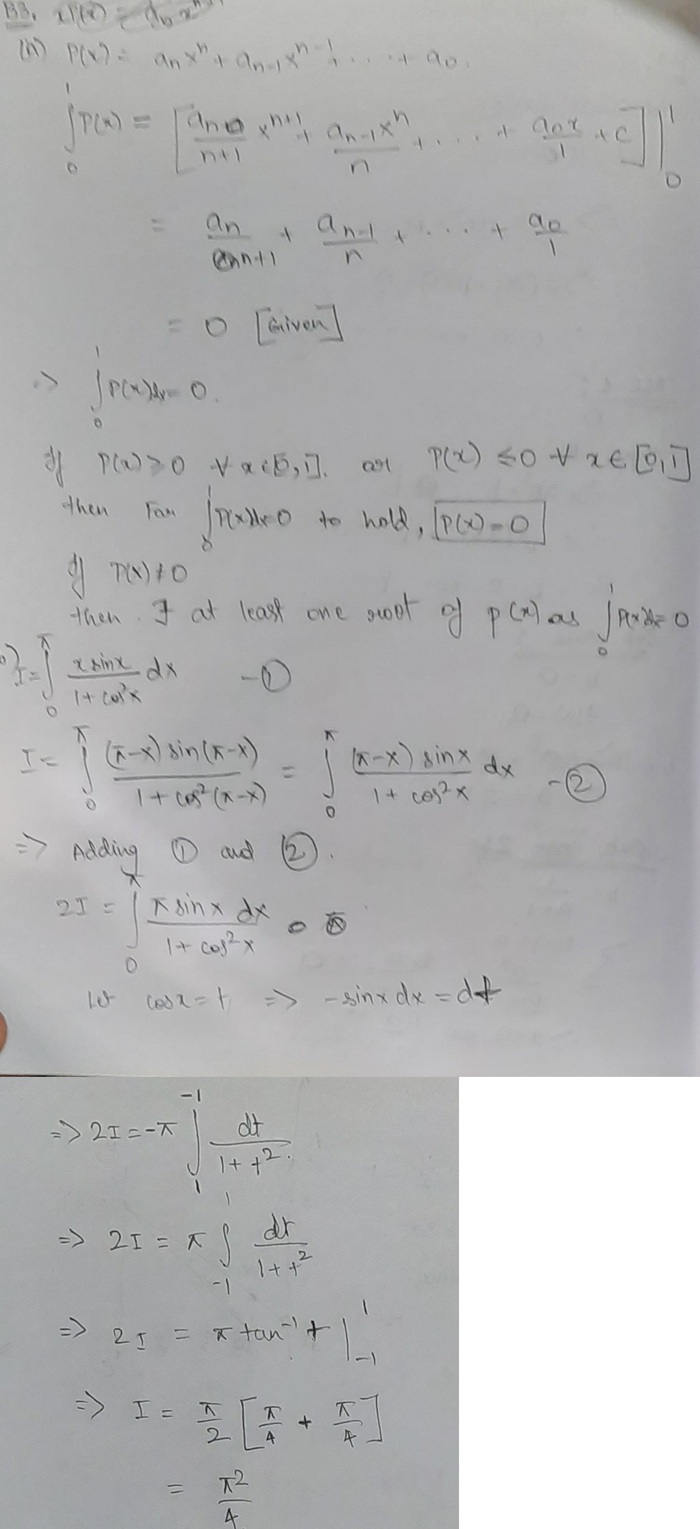 B3.
(a) P(x) = aₙxⁿ + aₙ₋₁xⁿ⁻¹ + .... + a₀.
∫₀¹ P(x) = [aₙ/(n+1) xⁿ⁺¹ + aₙ₋₁xⁿ/n + .... + a₀x/1 + c] |₀¹
= aₙ/(n+1) + aₙ₋₁/n + .... + a₀/1
= 0 [Given]
=> ∫₀¹ P(x)dx = 0.
If P(x) ≥ 0 ∀ x ∈ [0,1]. or P(x) ≤ 0 ∀ x ∈ [0,1]
then For ∫₀¹ P(x)dx = 0 to hold, P(x) = 0
If P(x) ≠ 0
then ∃ at least one root of p(x) as ∫₀¹ P(x)dx = 0
b) I = ∫₀^π x sinx/(1 + cos²x) dx - ①
I = ∫₀^π (π-x) sin(π-x)/(1 + cos²(π-x)) = ∫₀^π (π-x) sinx/(1 + cos²x) dx - ②
=> Adding ① and ②.
2I = ∫₀^π π sinx dx/(1 + cos²x)
Let cosx = t => -sinx dx = dt
=> 2I = -π ∫₁⁻¹ dt/(1 + t²)
=> 2I = π ∫₋₁¹ dt/(1 + t²)
=> 2I = π tan⁻¹ t |₋₁¹
=> I = π/2 [π/4 + π/4]
= π²/4